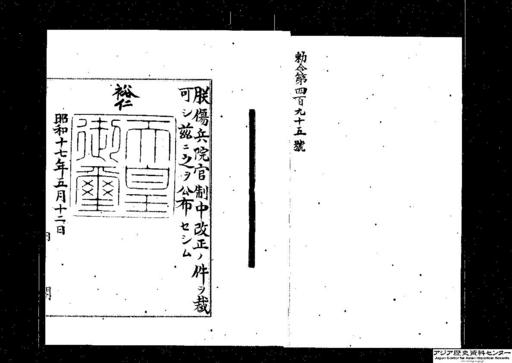 勅令第四百九十五號
朕傷兵院官制中改正ノ件ヲ裁
可シ茲ニ之ヲ公布セシム
裕仁
天皇
御璽
昭和十七年五月十二日
内閣
アジア歴史資料センター
Japan Center for Asian Historical Records